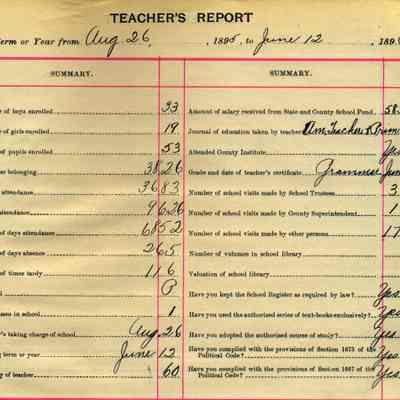 TEACHER'S REPORT
Term or Year from Aug 26, 1895, to June 12, 189
SUMMARY.
SUMMARY.
of boys enrolled 33
of girls enrolled 19
of pupils enrolled 53
belonging 38.26
attendance 36.83
attendance 96.26
of days attendance 6852
of days absence 265
of times tardy 116
P
in school 1
's taking charge of school Aug. 26
term or year June 12
of teacher 60
Amount of salary received from State and County School Fund 58
Journal of education taken by teacher Am. Teacher & Prim
Attended County Institute Yes
Grade and date of teacher's certificate Grammar June
Number of school visits made by School Trustees 3
Number of school visits made by County Superintendent 1
Number of school visits made by other persons 17
Number of volumes in school library
Valuation of school library
Have you kept the School Register as required by law? Yes
Have you used the authorized series of text-books exclusively? Yes
Have you adopted the authorized course of study? Yes
Have you complied with the provisions of Section 1673 of the Political Code? Yes
Have you complied with the provisions of Section 1667 of the Political Code? Yes